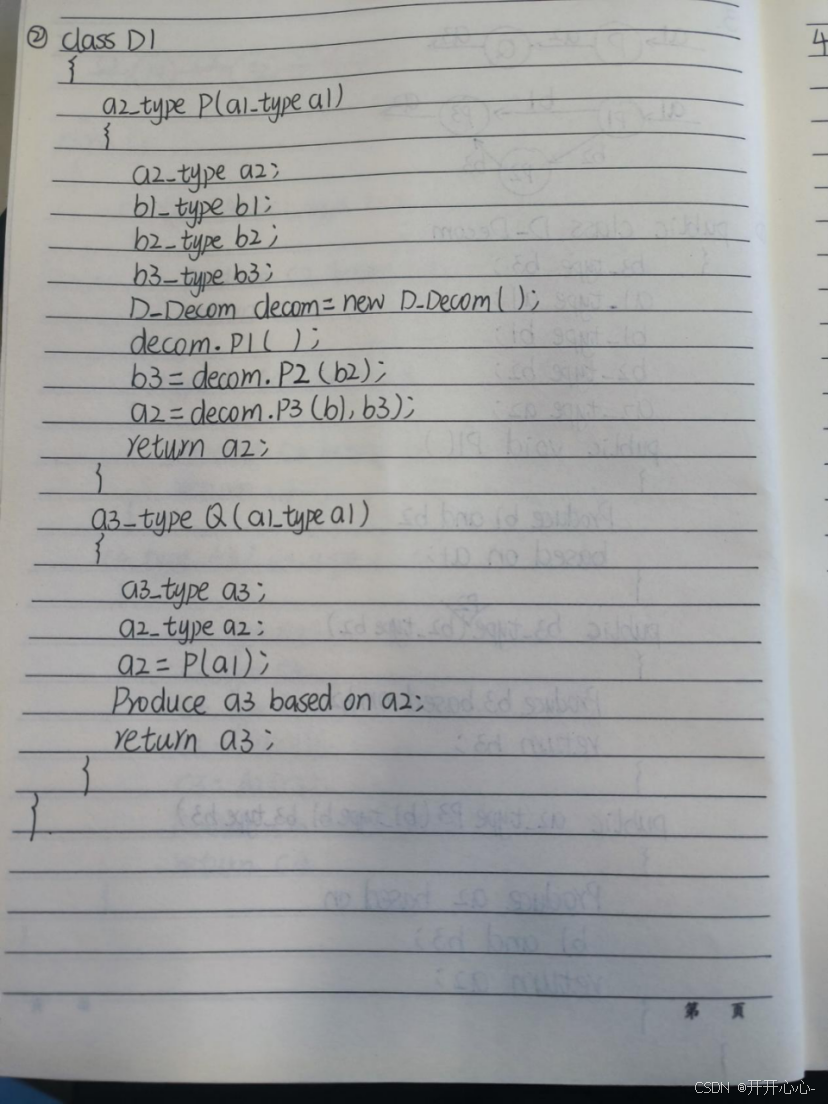 ② class D1
{
a2_type P(a1_type a1)
{
a2_type a2;
b1_type b1;
b2_type b2;
b3_type b3;
D_Decom decom=new D_Decom();
decom.P1( );
b3=decom.P2(b2);
a2=decom.P3(b1,b3);
return a2;
}
a3_type Q(a1_type a1)
{
a3_type a3;
a2_type a2;
a2=P(a1);
Produce a3 based on a2;
return a3;
}
}
第 頁
4
CSDN @开开心心-